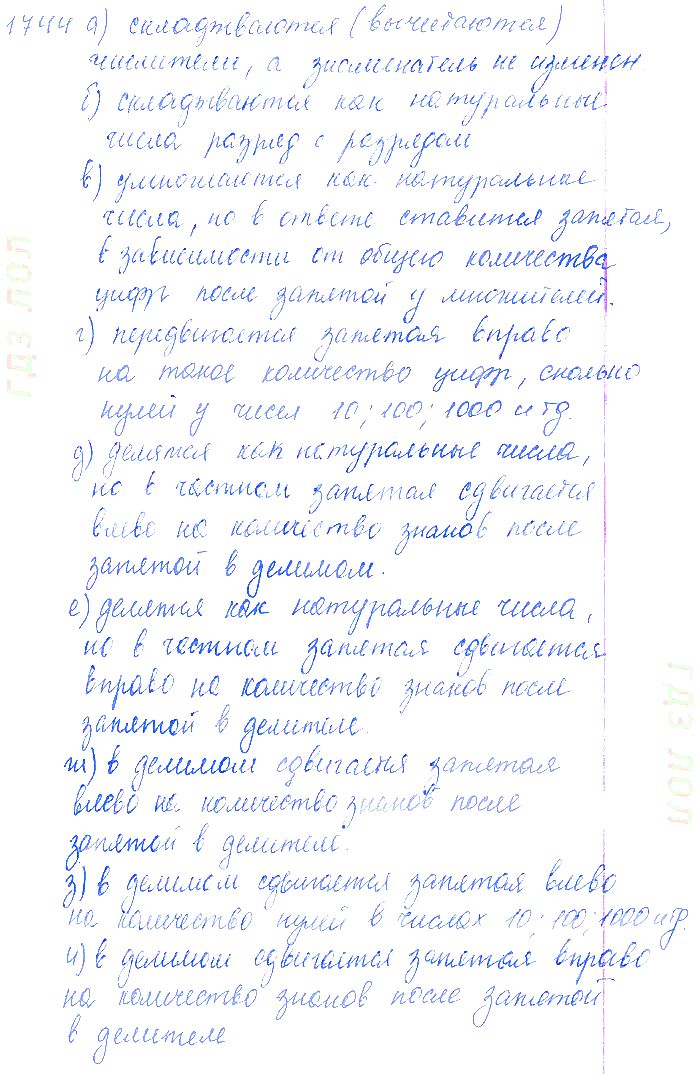 1744 а) складываются (вычитаются)
числители, а знаменатель не изменен
б) складываются как натуральные
числа разряд с разрядом
в) умножаются как натуральные
числа, но в ответе ставится запятая,
в зависимости от общего количества
цифр после запятой у множителей.
г) передвигается запятая вправо
на такое количество цифр, сколько
нулей у чисел 10; 100; 1000 и тд.
д) делятся как натуральные числа,
но в частном запятая сдвигается
влево на количество знаков после
запятой в делимом.
е) делятся как натуральные числа,
но в частном запятая сдвигается
вправо на количество знаков после
запятой в делителе.
ж) в делимом сдвигается запятая
влево на количество знаков после
запятой в делителе.
з) в делимом сдвигается запятая влево
на количество нулей в числах 10; 100; 1000 и тд.
и) в делимом сдвигается запятая вправо
на количество знаков после запятой
в делителе
гдз лол
гдз лол